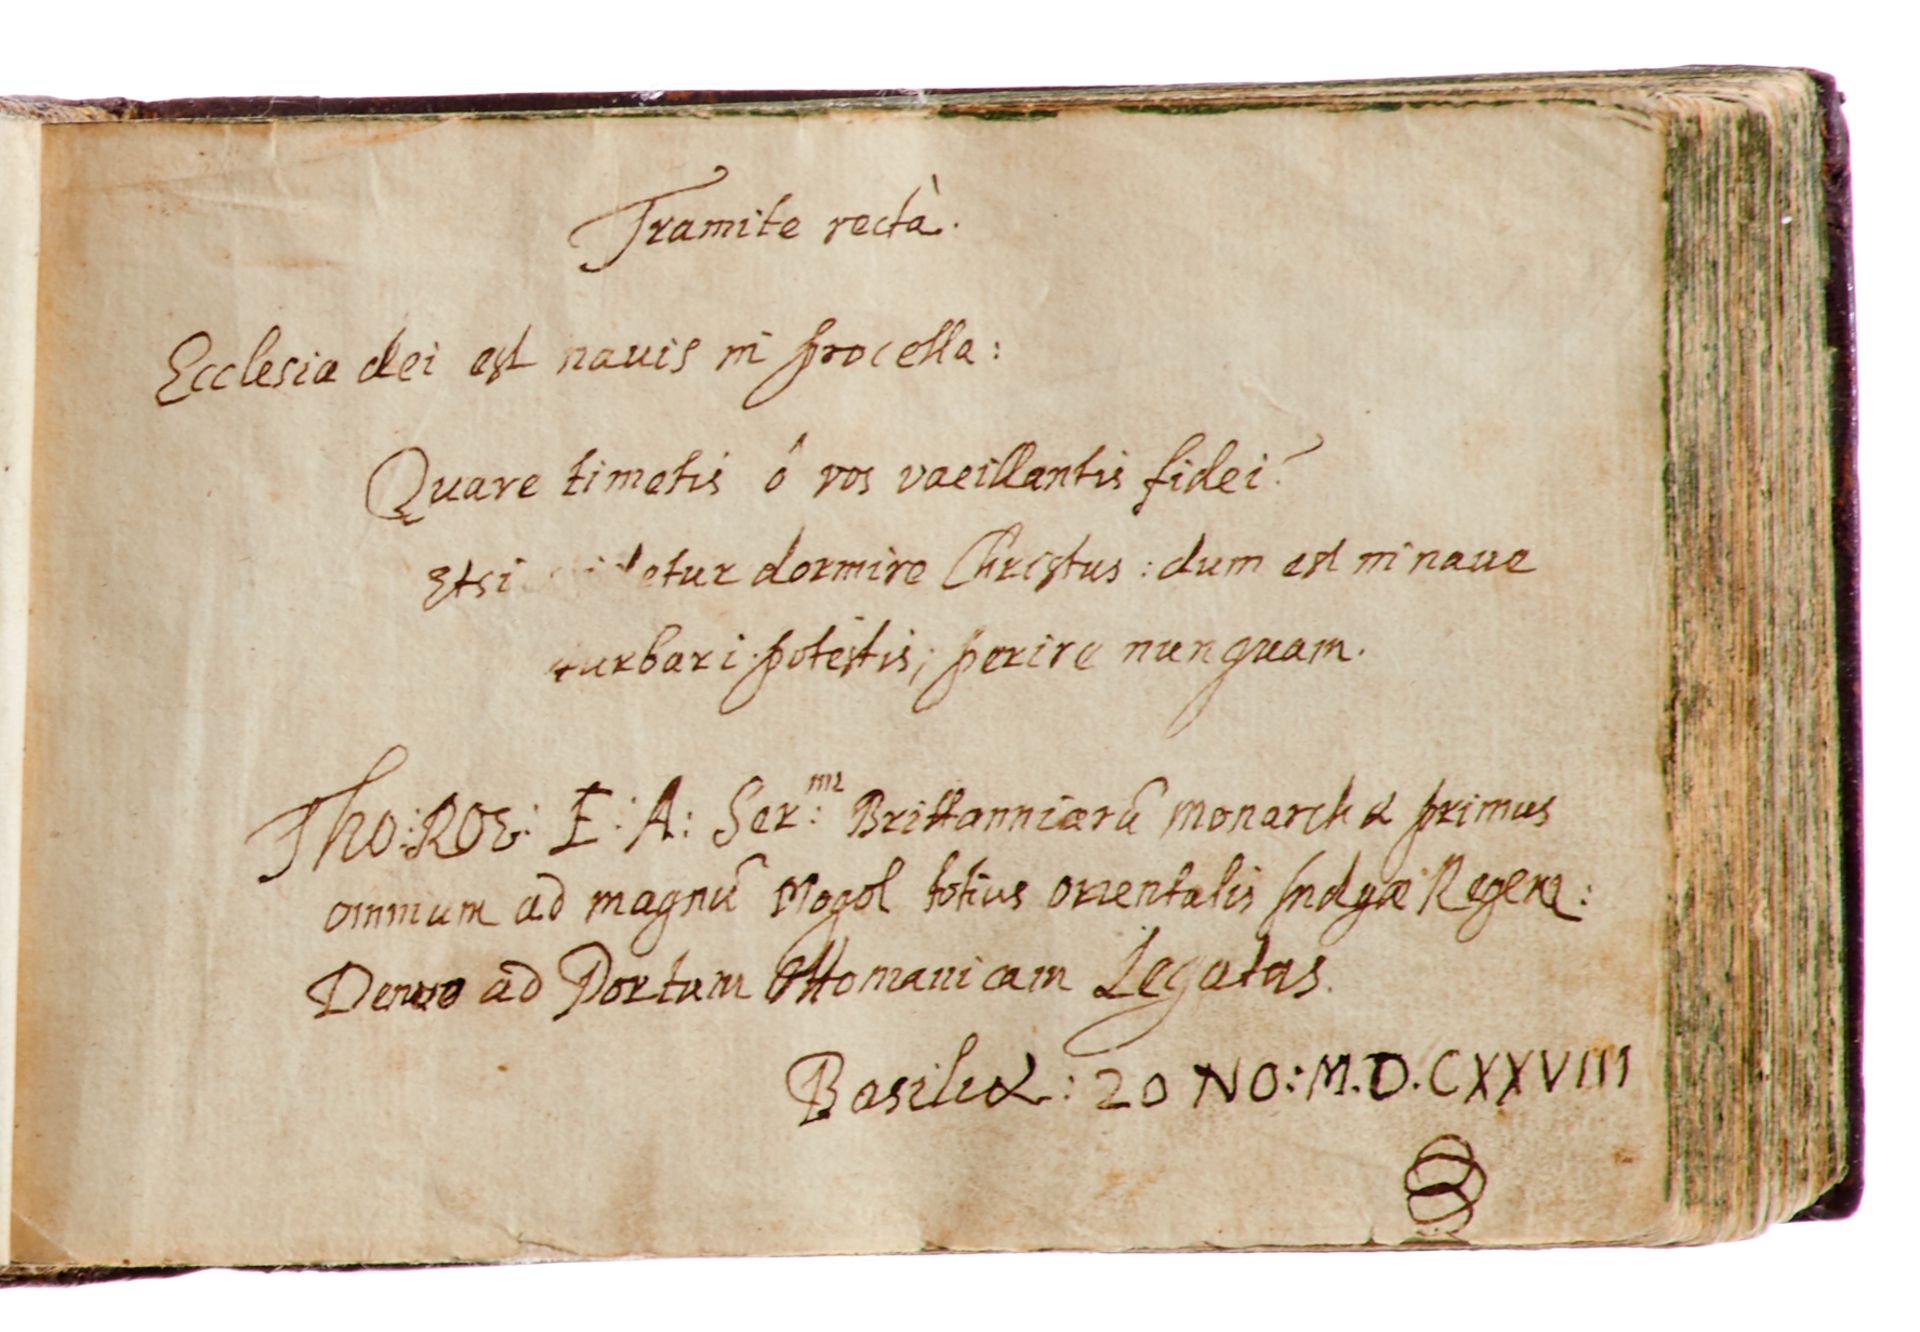 Tramite rectà.
Ecclesia dei est nauis in procella:
Quare timetis ô vos vacillantis fidei?
Etsi dormire Christus: dum est in naue
turbari potestis; perire nunquam.
Tho: ROE: E: A: Ser:mi Brittanniarū Monarchæ primus
omnium ad magnū Mogol totius orientalis Indyæ Regem:
Denuo ad Portam Ottomanicam Legatus.
Basileæ: 20 NO: M.D.CXXVIII